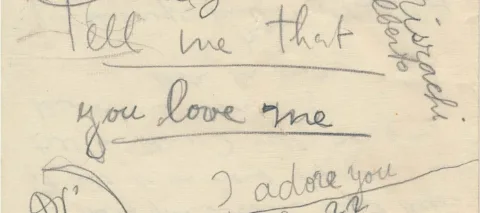 Tell me that
you love me
I adore you
Alberto